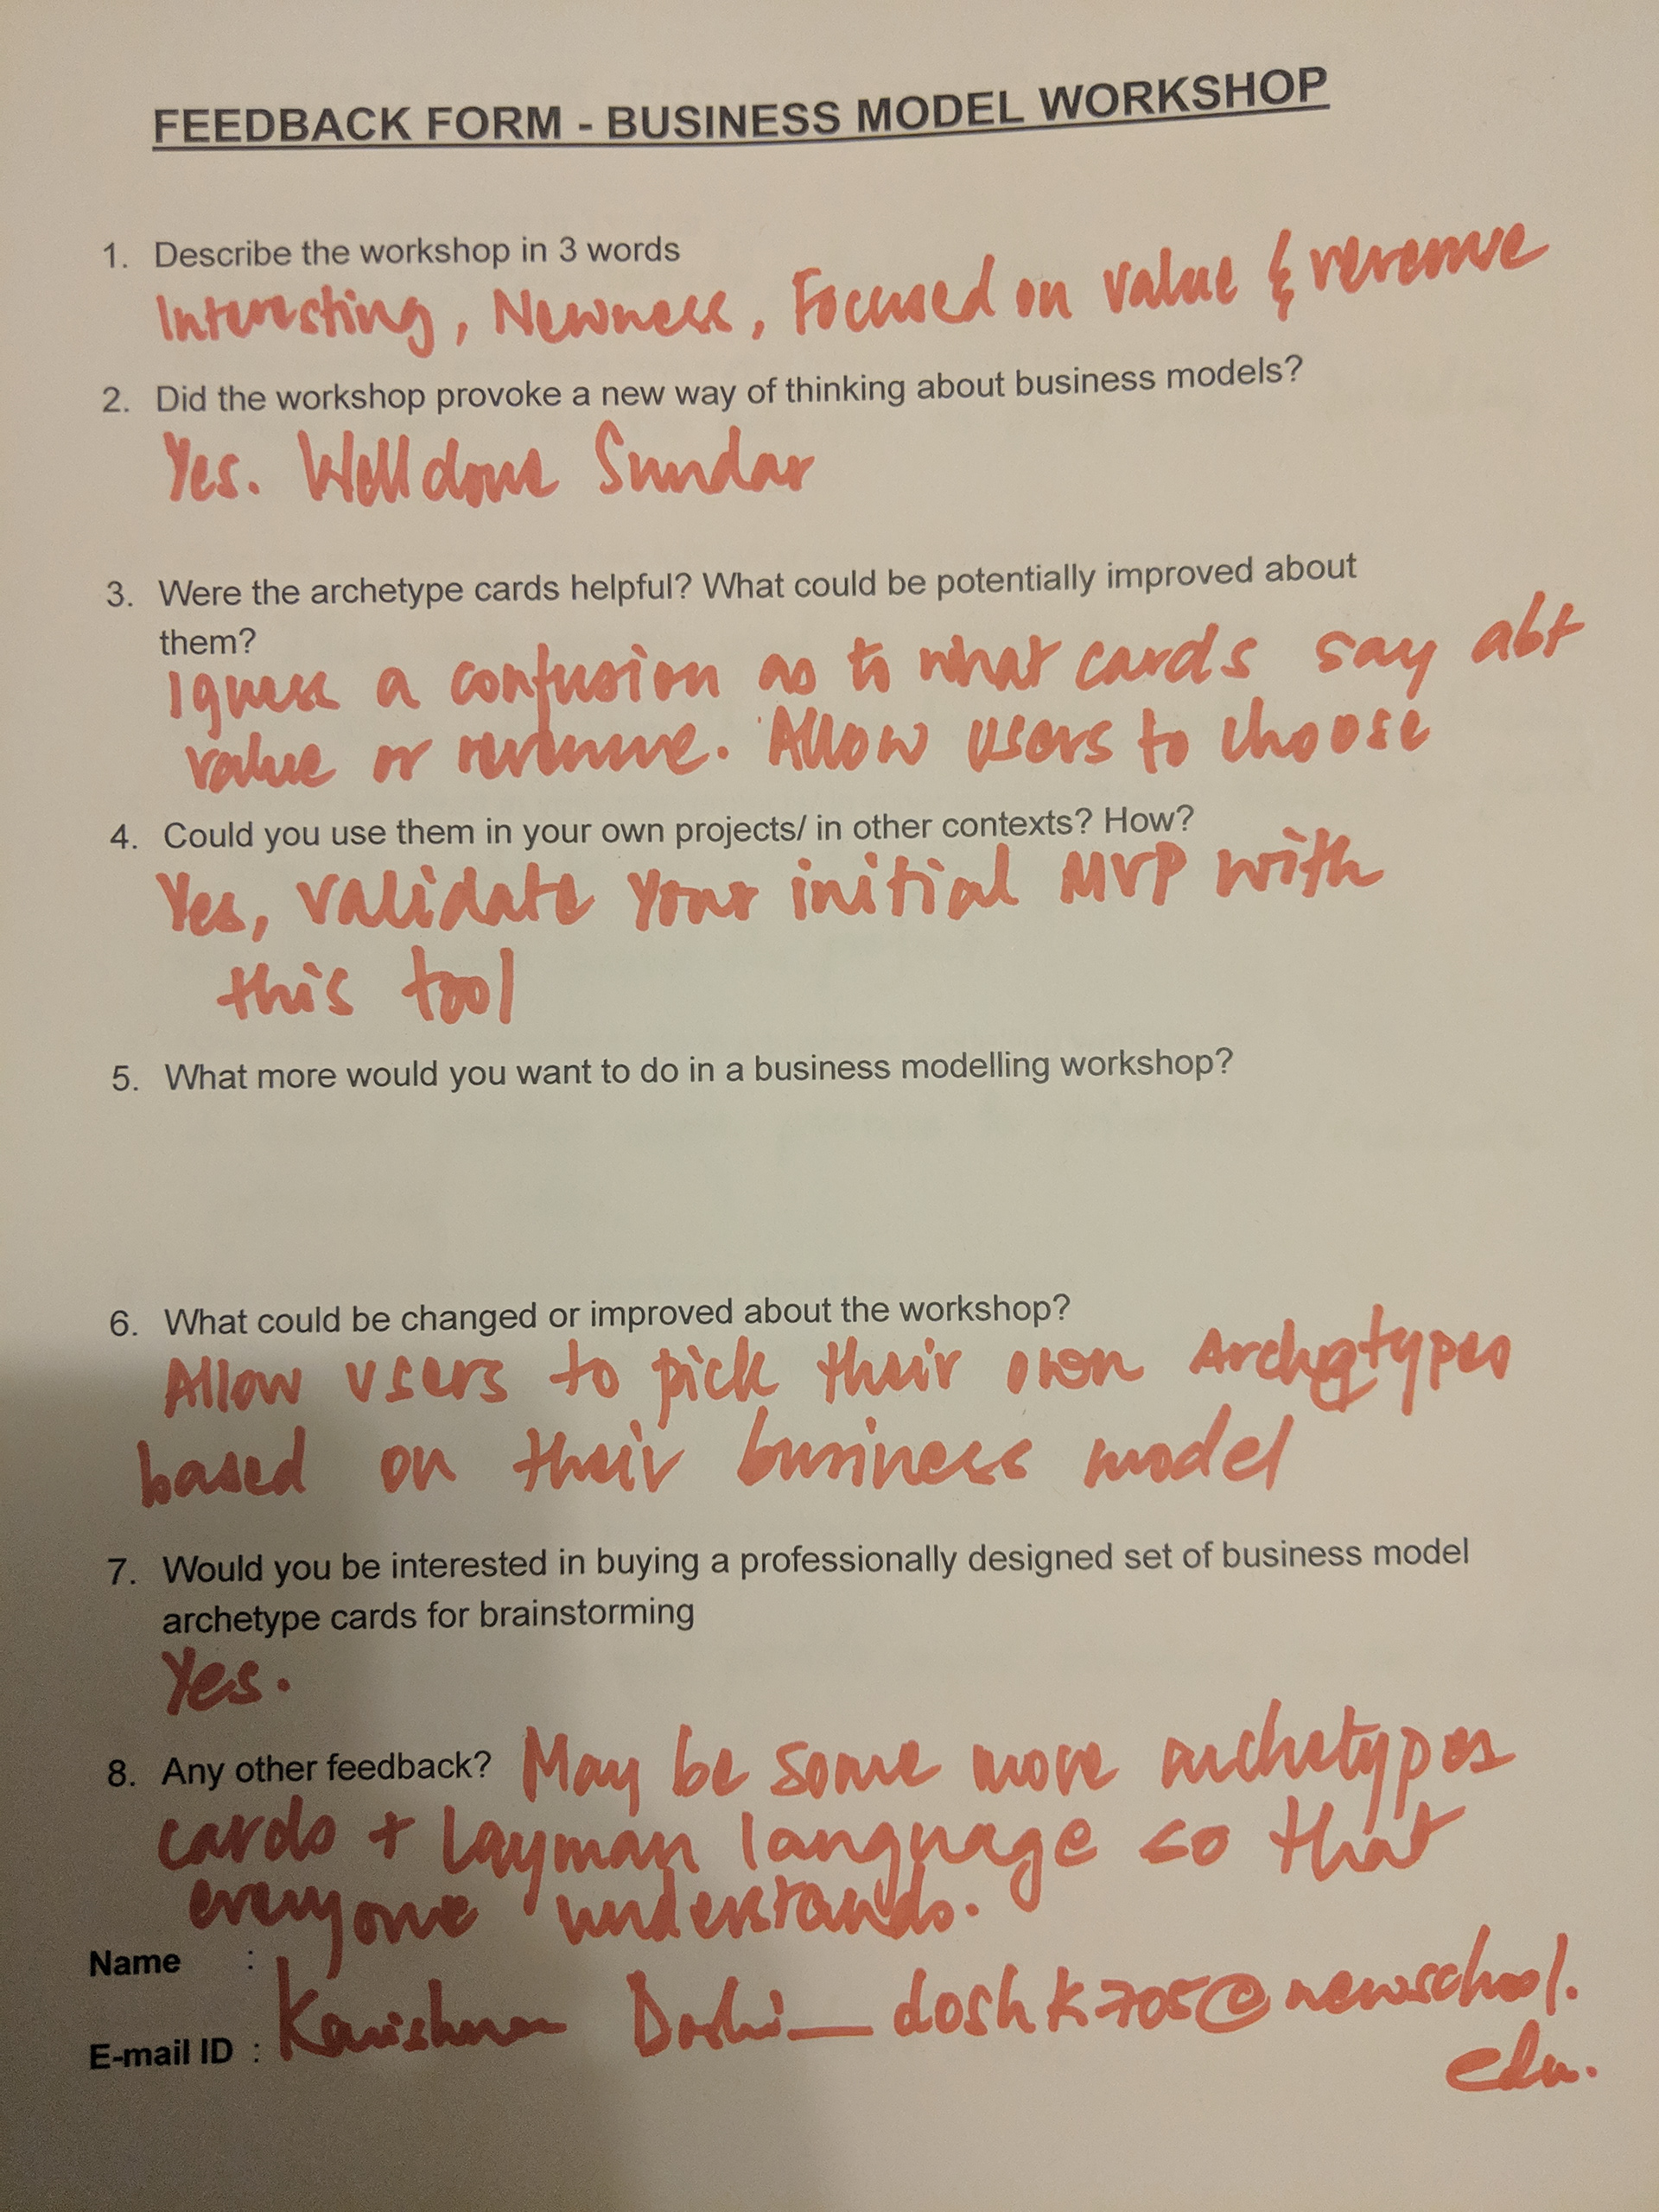 FEEDBACK FORM - BUSINESS MODEL WORKSHOP
1. Describe the workshop in 3 words
Interesting, Newness, Focused on value & revenue
2. Did the workshop provoke a new way of thinking about business models?
Yes. Well done Sundar
3. Were the archetype cards helpful? What could be potentially improved about
them?
I guess a confusion as to what cards say abt
value or revenue. Allow users to choose
4. Could you use them in your own projects/ in other contexts? How?
Yes, validate your initial MVP with
this tool
5. What more would you want to do in a business modelling workshop?
6. What could be changed or improved about the workshop?
Allow users to pick their own Archetypes
based on their business model
7. Would you be interested in buying a professionally designed set of business model
archetype cards for brainstorming
Yes.
8. Any other feedback? May be some more archetypes
cards + layman language so that
everyone understands.
Name :
E-mail ID : Doshi_ doshk705@newschool.
edu.